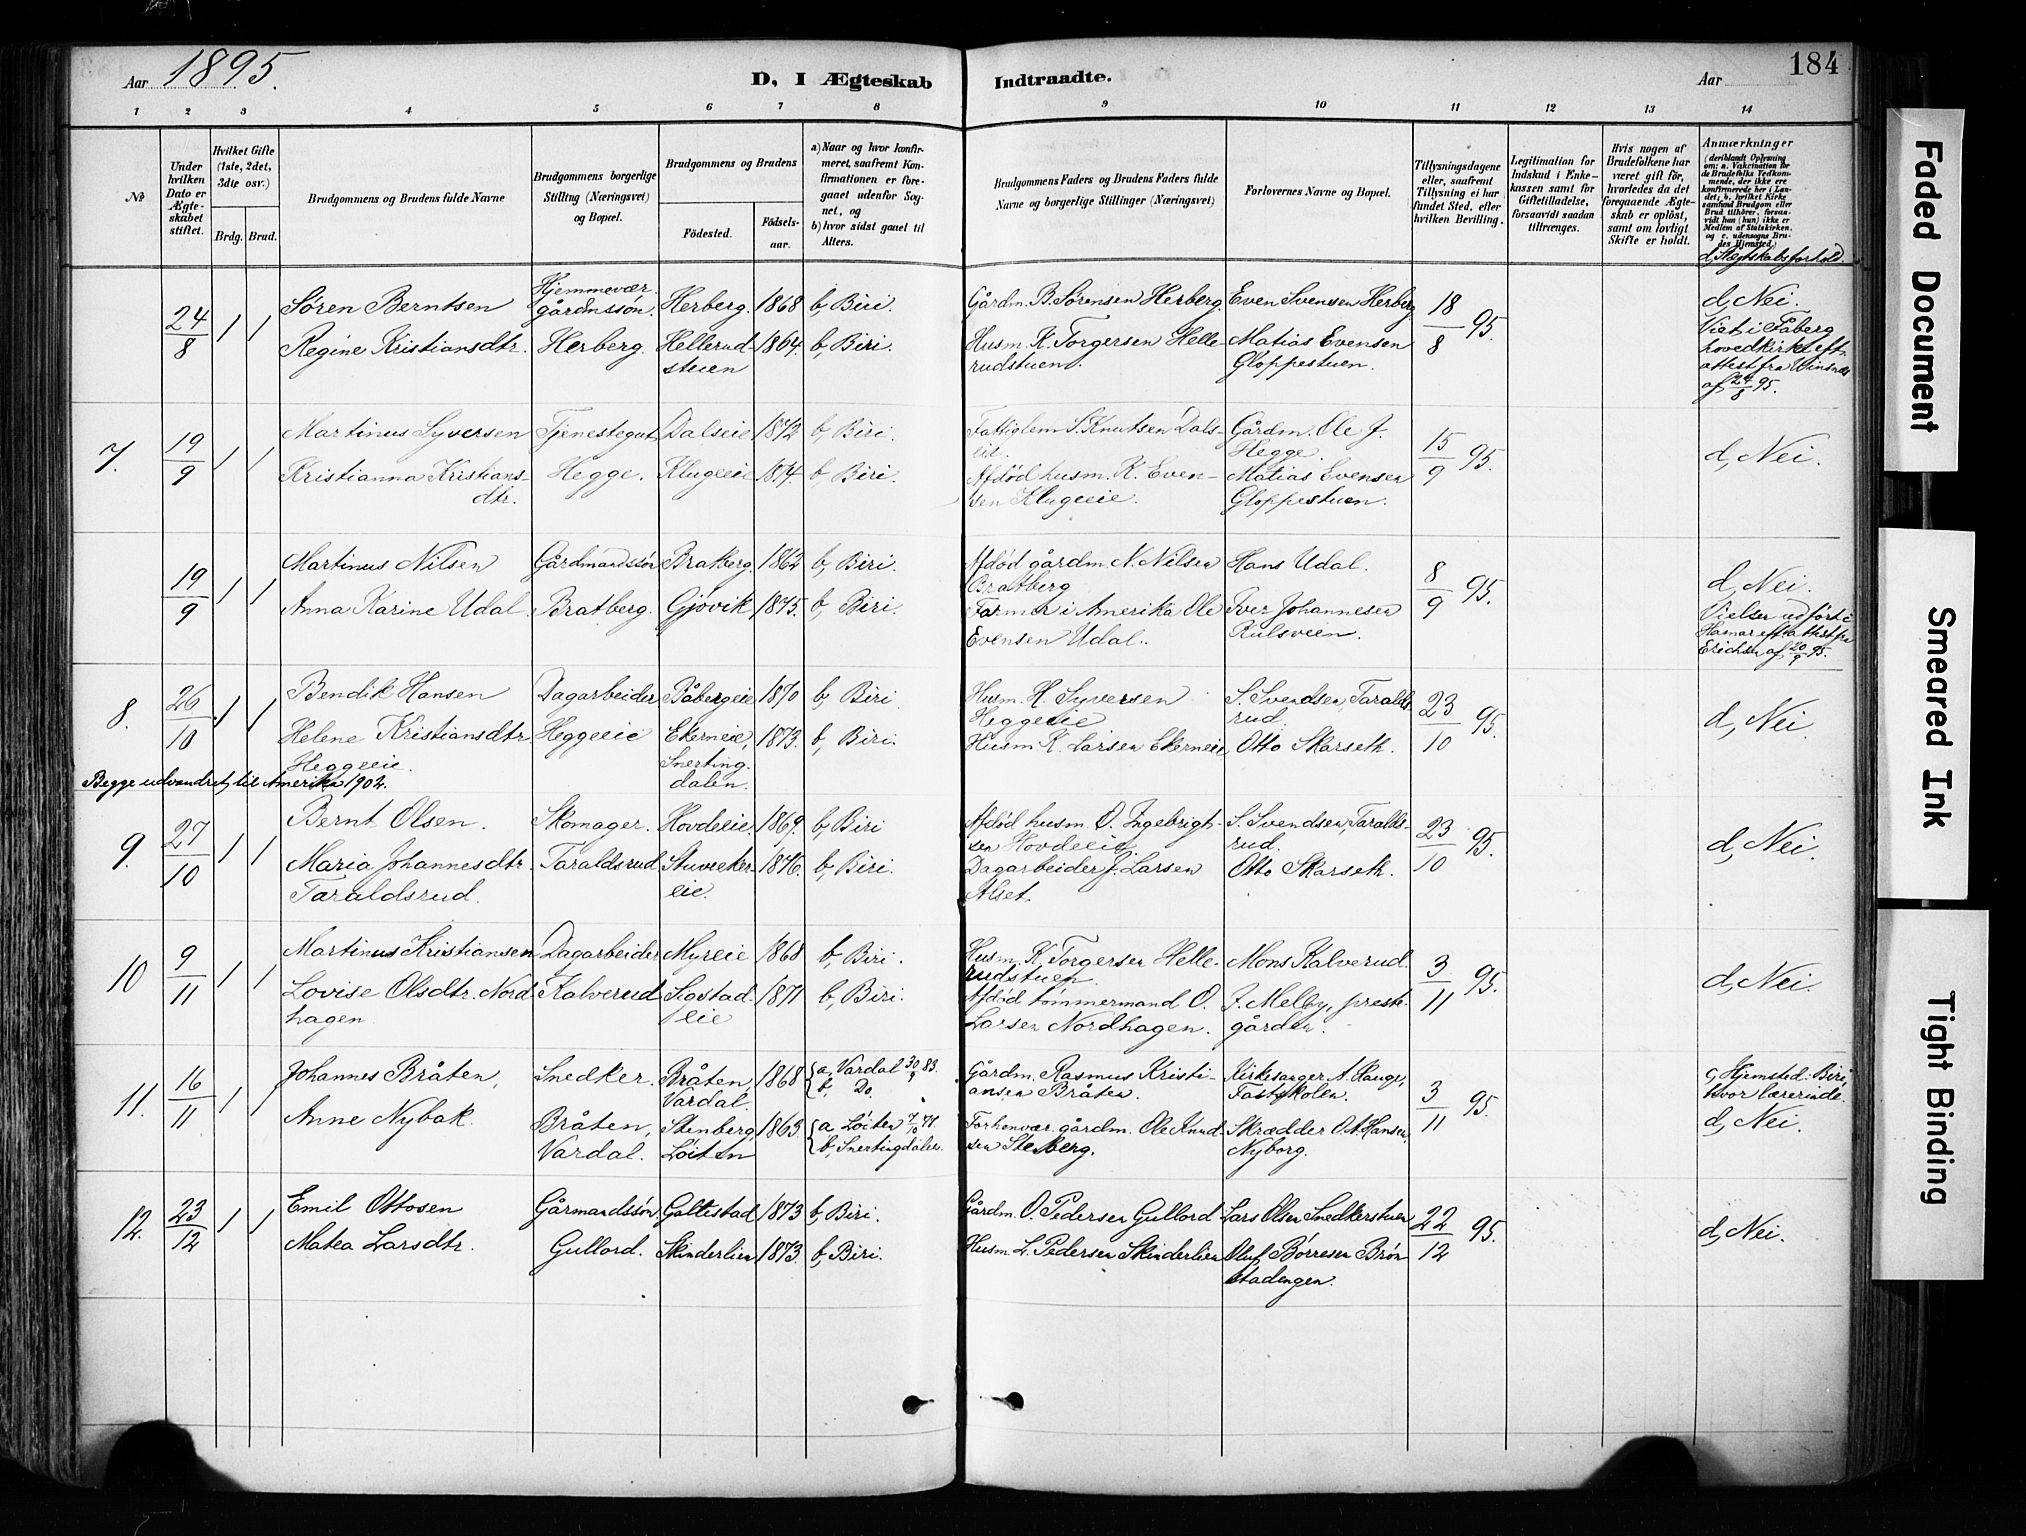 Aar 1895.
D, I Ægteskab Indtraadte.
Aar
184
1 2 3 4 5 6 7 8 9 10 11 12 13 14
No
Under hvilken Dato er Ægteskabet stiftet.
Hvilket Gifte (1ste, 2det, 3die osv.)
Brdg. Brud.
Brudgommens og Brudens fulde Navne
Brudgommens borgerlige Stilling (Næringsvei) og Bopæl.
Brudgommens og Brudens
Fødested. Fødselsaar.
a) Naar og hvor konfirmeret, saafremt Konfirmationen er foregaaet udenfor Sognet, og
b) hvor sidst gaaet til Alters.
Brudgommens Faders og Brudens Faders fulde Navne og borgerlige Stillinger (Næringsvei)
Forlovernes Navne og Bopæl.
Tillysningsdagene eller, saafremt Tillysning ei har fundet Sted, efter hvilken Bevilling.
Legitimation for Indskud i Enkekassen samt for Giftetilladelse, forsaavidt saadan tiltrænges.
Hvis nogen af Brudefolkene har været gift før, hvorledes da det foregaaende Ægteskab er opløst, samt om lovligt Skifte er holdt.
Anmærkninger
(deriblandt Oplysning om: a. Vakcination for de Brudefolks Vedkommende, der ikke ere konfirmerede her i Landet; b. hvilket Kirkesamfund Brudgom eller Brud tilhører, forsaavidt han (hun) ikke er Medlem af Statskirken. og c. udensogns Brudes Hjemsted.)
d, Slegtskabsforhold.
24/8 1 1
Søren Berntsen
Regine Kristiansdtr.
Hjemmevær. gårdmssøn.
Herberg.
Herberg. 1868 b, Biri.
Hellerudstuen 1864. b, Biri.
Gårdm. B. Sørensen Herberg.
Husm. K. Torgersen Hellerudstuen.
Even Svensen Herberg
Matias Evensen Gloppestuen.
18/8 95.
d, Nei.
Viet i Fåberg
hovedkirke eft.
attest fra Winsnes
af 24/8 95.
7. 19/9 1 1
Martinus Syversen
Kristianna Kristiansdtr.
Tjenestegut
Hegge.
Dalseie 1872 b, Biri.
Klugeeie 1874. b, Biri.
Fattiglem S. Knutsen Dalslil.
Afdød husm. K. Evensen Klugeeie.
Gårdm. Ole J. Hegge.
Matias Evensen Gloppestuen.
15/9 95.
d, Nei.
19/9 1 1
Martinus Nilsen
Anna Karine Udal
Gårdmandssøn
Bratberg.
Bratberg. 1862 b, Biri.
Gjøvik 1875. b, Biri.
Afdød gårdm. N. Nilsen
Bratberg
Farmer i Amerika Ole
Evensen Udal.
Hans Udal.
Iver Johannesen
8/9 95.
d, Nei.
Vielsen udført i
Hamar
Erichsen af 20/9 95.
8. 26/10 1 1
Bendik Hansen
Helene Kristiansdtr.
Heggeeie.
Begge udvandret til Amerika 1902.
Dagarbeider
Heggeeie
Påbergeie 1870 b, Biri.
Ekerneie, Snertingdalen. 1873. b, Biri.
Husm. H. Syversen
Heggeeie
Husm. K. Larsen Ekerneie
S. Svendsen Taraldsrud.
Otto Skarseth.
23/10 95.
d, Nei.
9. 27/10 1 1
Bernt Olsen.
Maria Johannesdtr.
Taraldsrud.
Skomager.
Taraldsrud
Hovdeeie 1869. b, Biri
Stuvekereie. 1876. b, Biri.
Afdød husm. O. Ingebrigtsen Hovdeeie
Dagarbeider J. Larsen
Alset.
S. Svendsen, Taraldsrud.
Otto Skarseth.
23/10 95.
d, Nei.
10 9/11 1 1
Martinus Kristiansen
Lovise Olsdtr. Nordhagen.
Dagarbeider
Kalverud
Myreie 1868 b, Biri.
Sigstadeie 1871 b, Biri.
Husm. K. Torgersen Hellerudstuen
Afdød tømmermand O.
Larsen Nordhagen.
Mons Kalverud.
J. Melby, prestegården.
3/11 95.
d, Nei.
11. 16/11 1 1
Johannes Bråten,
Anne Nybak.
Snedker.
Bråten, Vardal.
Bråten, Vardal. 1868 a, Vardal 30/9 83. b, Do.
Stenberg, Løiten 1863. a, Løiten 7/10 77. b, Snertingdalen.
Gårdm. Rasmus Kristiansen Bråten.
Forhenvær. gårdm. Ole Knudsen Stenberg.
Kirkesanger A. Hauge, Fastskolen.
Skrædder O. A. Hansen Nyborg.
3/11 95.
c, Hjemsted. Biri,
hvor lærerinde.
d, Nei.
12. 23/12 1 1
Emil Ottosen
Matea Larsdtr.
Gårmandssøn
Gullord.
Galtestad 1873 b, Biri.
Skinderlien 1873. b, Biri.
Gårdm. O. Pedersen Gullord
Husm. L. Pedersen Skinderlien
Lars Olsen Snedkerstuen
Oluf Børresen Brønstadengen.
22/12 95.
d, Nei.
Faded Document
Smeared Ink
Tight Binding